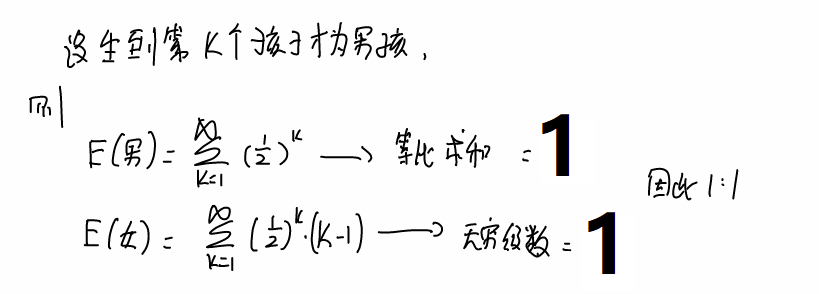 设生到第K个孩子才为男孩,
则
E(男)= ∑_{K=1}^{∞} (1/2)^K → 等比求和 = 1
因此 1:1
E(女) = ∑_{K=1}^{∞} (1/2)^K·(K-1) → 无穷级数 = 1